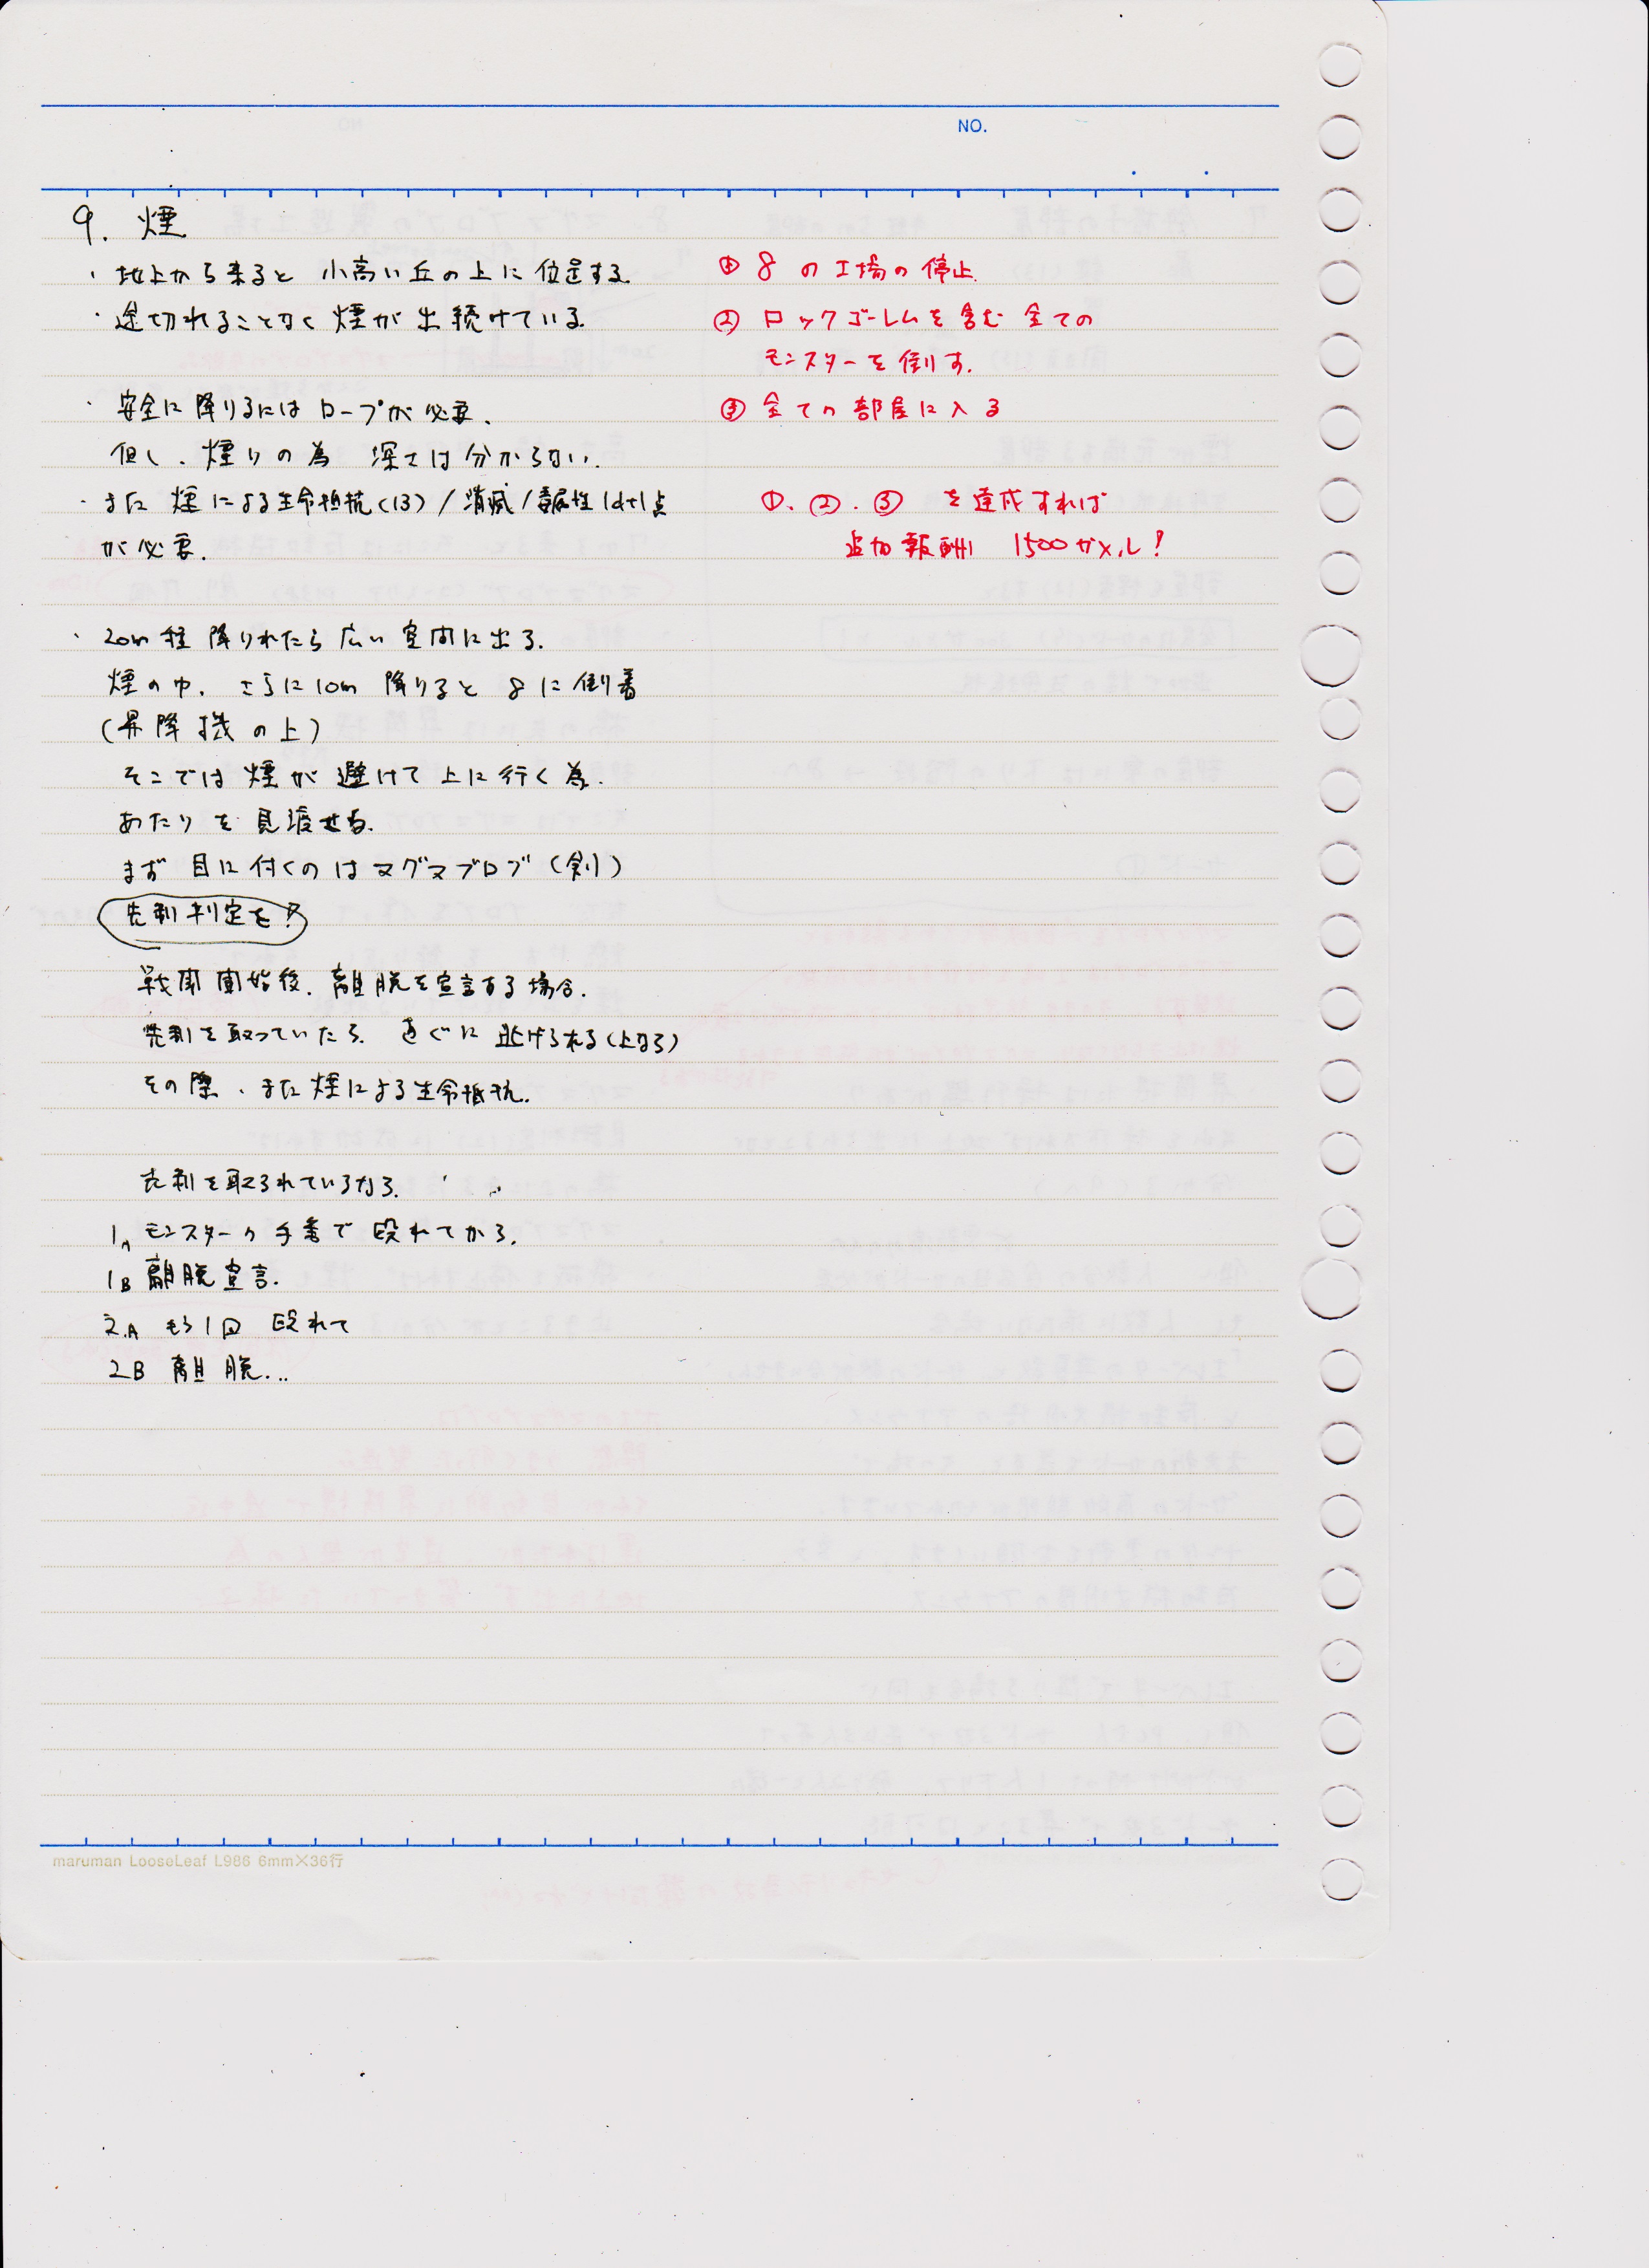 NO.
9. 煙
・地上から来ると 小高い丘の上に位置する.
・途切れることなく 煙が出続けている.
・安全に降りるには ロープが必要.
但し、煙りの為 深さは分からない.
・また 煙による生命抵抗(13)/消滅/毒属性 1d+1点
が必要.
・20m程 降りれたら 広い空間に出る.
煙の中. さらに10m 降りると 8に到着
(昇降機の上)
そこでは 煙が避けて上に行く為.
あたりを 見渡せる.
まず 目に付くのは マグマブロブ(剣)
先制判定を!
戦闘開始後. 離脱を宣言する場合.
先制を取っていたら. 直ぐに逃げられる(上なら)
その際、また煙による生命抵抗.
先制を取られているなら.
1A モンスターの手番で 殴れてから.
1B 離脱宣言.
2.A もう1回 殴れて
2B 離脱...
① 8の工場の停止.
② ロックゴーレムを含む 全ての
モンスターを倒す.
③ 全ての部屋に入る
①.②.③ を達成すれば
追加報酬 1500ガメル!
maruman LooseLeaf L986 6mm×36行